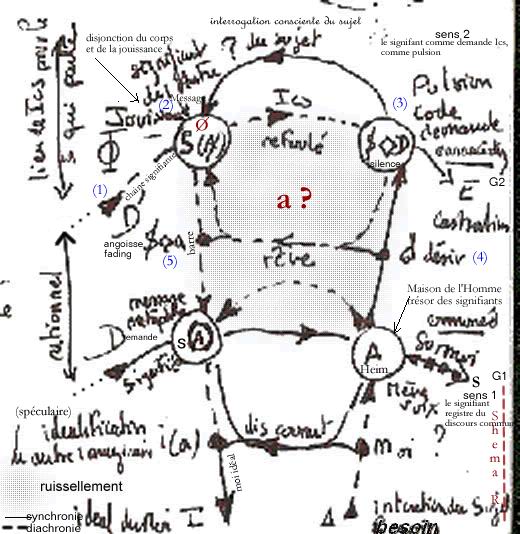 interrogation consciente du sujet
disjonction du corps
et de la jouissance
sens 2
le signifant comme demande Ics,
comme pulsion
? du sujet
signifiant
de l'autre
Message
(2)
Ics
(3)
Pulsion
code
demande
Joui
Ø
S(A)
refoulé
$◇D
silence
lieu de Ics
qui parle
Φ
(1)
chaine signifiante
a ?
E
G2
castration
D
angoisse
fading
$◇a
(5)
barre
rêve
d désir
(4)
rationnel
Maison de l'Homme
trésor des signifiants
message
Demande
s(A)
A
Heim
s
G1
sens 1
le signifiant
registre du
discours commun
Schema R
(spéculaire)
identification
i(a)
discourant
moi
?
moi idéal
ruissellement
synchronie
diachronie
ideal du moi I
Δ
intention du Sujet
besoin